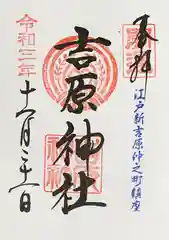 奉拝
江戸新吉原仲之町鎮座
吉原神社
令和三年
十二月三十一日